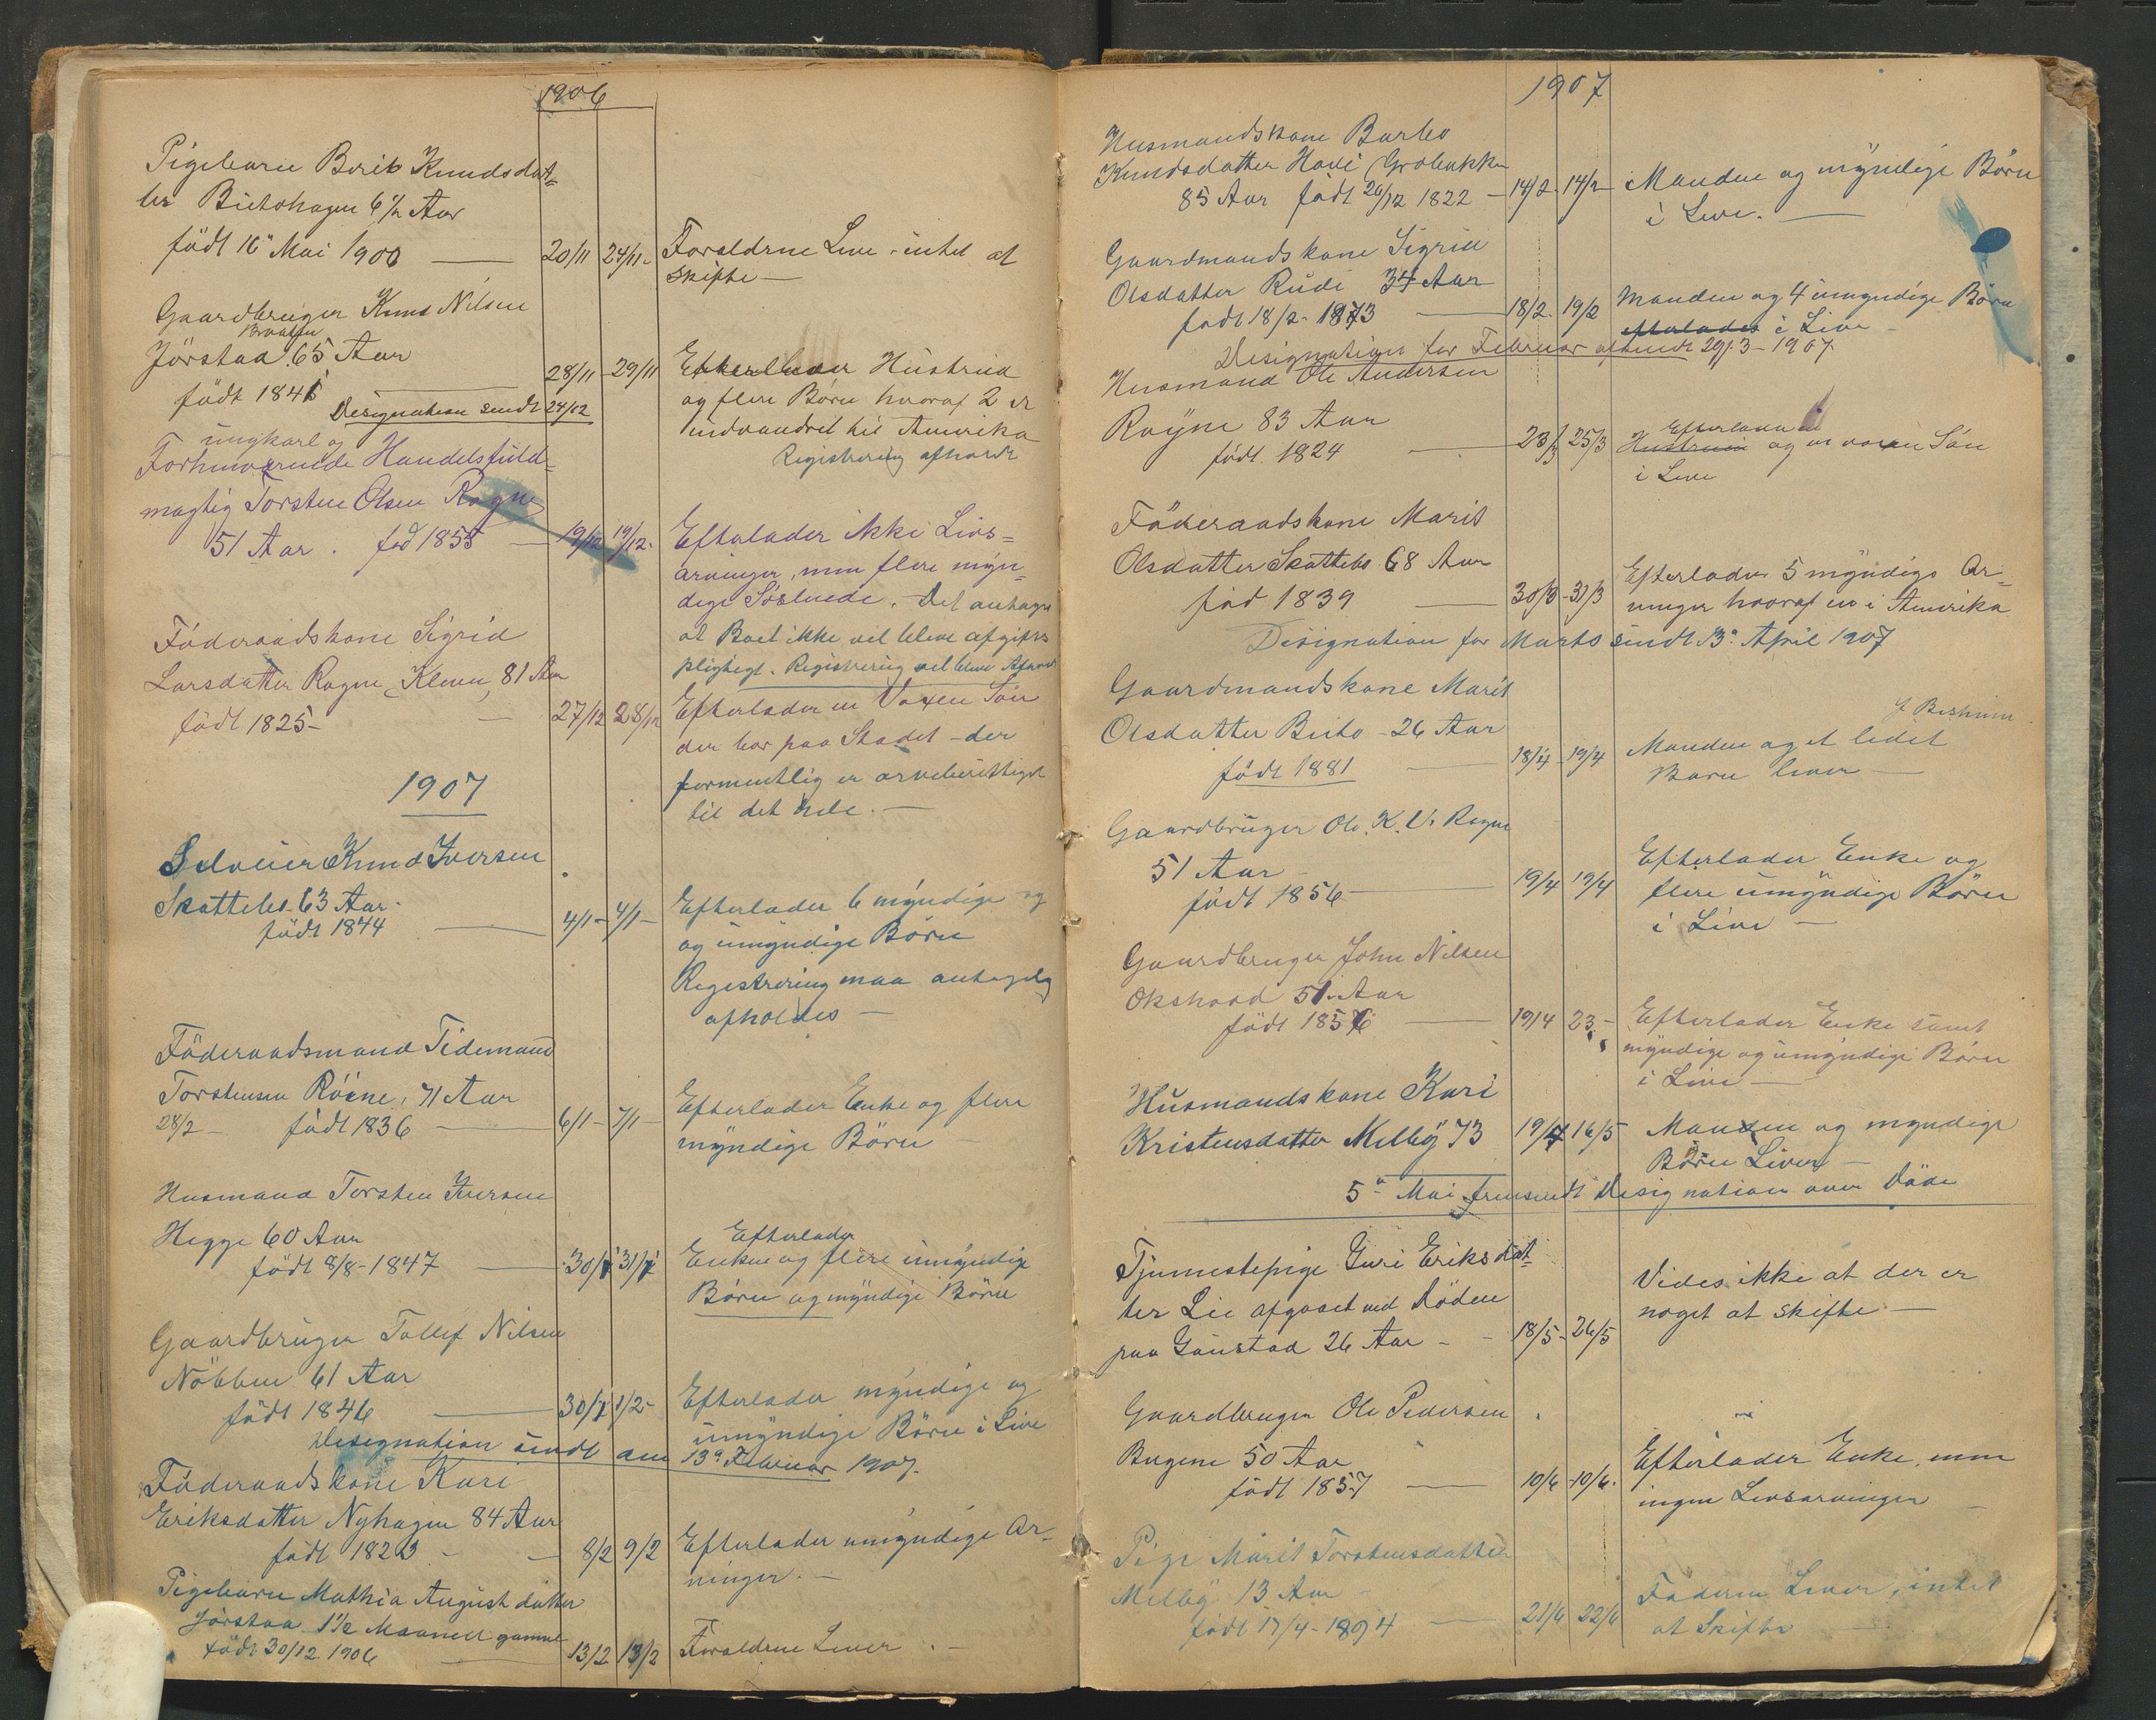 1906
Pigebarn Berit Knudsdat=
ter Bictohagen 6½ Aar
födt 16 Mai 1900 — 20/11 24/11- Forældrne Leve - intet at
skifte —
Gaardbruger Knud Nilsen
Braaten
Jörstad 65 Aar 28/11 - 29/11 Efterlader Hustrua
födt 1841 og flere Börn hvoraf 2 er
Designation sendt 24/12 indvandret til Amerika
ungkarl og Registrering afholdt
Forhenværende Handelsfuld=
mægtig Torsten Olsen Rogne
51 Aar . fød 1855 — 19/12 19/12- Efterlader ikke Livs=
arvinger, men flere myn=
dige Söskende. Det antages
at Boet ikke vil blive afgifts
pligtigt. Registrering vil blive Afhold
Föderaadskone Sigrid
Larsdatter Rogne, Kleven, 81 Aar
födt 1825 - — 27/12 28/12 Efterlader en Voxen Sön
der bor paa Stedet - der
formentlig er arveberettiget
til det hele. —
1907
Selveier Knud Iversen
Skattebo 63 Aar. 4/1 - 4/1 - Efterlader 6 myndige og
födt 1844 — og umyndige Börn
Registrering maa antagelig
afholdes —
Föderaadsmand Tidemand
Torstensen Röine, 71 Aar Efterlader Enke og flere
28/2 - födt 1836 — 6/1 - 7/1 - myndige Börn
Husmand Torsten Iversen
Hegge 60 Aar Efterlader
födt 8/8 - 1847 — 30/1 31/1 Enken og flere umyndige
Börn og myndige Börn
Gaardbruger Tollef Nilsen
Nöbben 61 Aar Efterlader myndige og
födt 1846 — 30/1 1/2 - umyndige Börn i Live
Designation sendt am 13de Februar 1907.
Föderaadskone Kari
Eriksdatter Nyhagen 84 Aar
födt 1823 - — 8/2 9/2 Efterlader umyndige Ar-
vinger. —
Pigebarn Mathia August datter
Jörstad 1½ Maaned gammel
födt 30/12 1906 — 13/2 13/2 Forældrne Lever . —
1907
Husmandskone Barbo
Knudsdatter Hovi Grobakken
85 Aar födt 26/12 1822 — 14/2 14/2 Manden og myndige Börn
i Live. —
Gaardmandskone Sigrid
Olsdatter Rudi 34 Aar
födt 18/2 - 1873 — 18/2 - 19/2 Manden og 4 umyndige Börn
efterlades i Live —
Designation for Februar afsendt 29/3 - 1907.
Husmand Ole Andersen
Röyne 83 Aar Efterlader
födt. 1824 — 23/3 25/3 Hustruen og en voxen Sön
i Live
Föderaadskone Marit
Olsdatter Skattebo 68 Aar Efterlader 5 myndige Ar=
fød 1839 — 30/3 - 31/3 vinger hvoraf en i Amerika
Designation for Marts sendt 13de April 1907
Gaardmandskone Marit
Olsdatter Beito - 26 Aar Manden og et lidet
födt 1881 — 18/4 - 19/4 Barn lever —
Gaardbruger Ole K. U. Rogne
51 Aar - Efterlader Enke og
födt 1856 — 19/4 19/4 flere umyndige Börn
i Live —
Gaardbruger John Nilsen
Okshovd 51 Aar
födt 1856 — 19/4 23 - Efterlader Enke samt
myndige og umyndige Börn
i Live —
Husmandskone Kari
Kristensdatter Melby 73 19/4 16/5 Manden og myndige
Börn Lever —
5te Mai fremsendt Designation over Döde
Tjenestepige Guri Eriksdat=
ter Lie afgaaet ved Döden Vides ikke at der er
paa Gaustad 26 Aar - - 18/5 - 26/5 noget at skifte —
Gaardbruger Ole Pedersen
Bugene 50 Aar Efterlader Enke, men
födt 1857 — 10/6 - 10/6. ingen Livsarvinger —
Pige Marit Torstensdatter
Melby 13 Aar - Faderen Lever, intet
födt 17/4 - 1894 — 21/6 22/6 at Skifte —